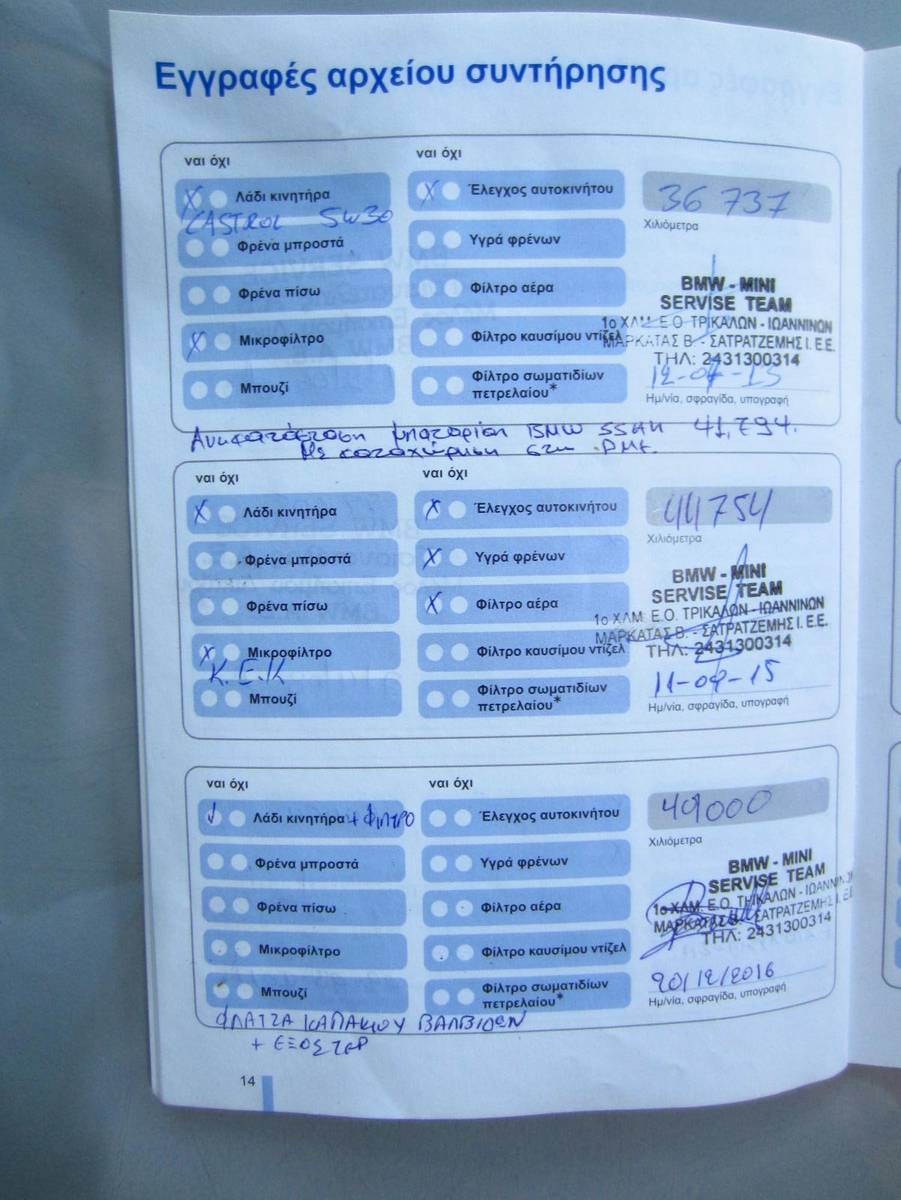 Εγγραφές αρχείου συντήρησης
ναι όχι
ναι όχι
X Λάδι κινητήρα
X Έλεγχος αυτοκινήτου
36 737
CASTROL 5W30
Χιλιόμετρα
Φρένα μπροστά
Υγρά φρένων
Φρένα πίσω
Φίλτρο αέρα
BMW - MINI
SERVISE TEAM
1ο ΧΛΜ. Ε.Ο. ΤΡΙΚΑΛΩΝ - ΙΩΑΝΝΙΝΩΝ
X Μικροφίλτρο
Φίλτρο καυσίμου ντίζελ
ΜΑΡΚΑΤΑΣ Β. - ΣΑΤΡΑΤΖΕΜΗΣ Ι. Ε.Ε.
ΤΗΛ: 2431300314
Μπουζί
Φίλτρο σωματιδίων
πετρελαίου*
Ημ/νία, σφραγίδα, υπογραφή
Αντικατάσταση μπαταρίας BMW 55AH 41,794.
Με καταχώρηση στην DME.
ναι όχι
ναι όχι
X Λάδι κινητήρα
X Έλεγχος αυτοκινήτου
44754
Χιλιόμετρα
Φρένα μπροστά
X Υγρά φρένων
BMW - MINI
SERVISE TEAM
Φρένα πίσω
X Φίλτρο αέρα
1ο ΧΛΜ. Ε.Ο. ΤΡΙΚΑΛΩΝ - ΙΩΑΝΝΙΝΩΝ
ΜΑΡΚΑΤΑΣ Β. - ΣΑΤΡΑΤΖΕΜΗΣ Ι. Ε.Ε.
X Μικροφίλτρο
Φίλτρο καυσίμου ντίζελ
ΤΗΛ: 2431300314
Κ.Ε.Κ
Μπουζί
Φίλτρο σωματιδίων
πετρελαίου*
Ημ/νία, σφραγίδα, υπογραφή
ναι όχι
ναι όχι
Λάδι κινητήρα + ΦΙΛΤΡΟ
Έλεγχος αυτοκινήτου
49000
Χιλιόμετρα
Φρένα μπροστά
Υγρά φρένων
BMW - MINI
SERVISE TEAM
Φρένα πίσω
Φίλτρο αέρα
1ο ΧΛΜ. Ε.Ο. ΤΡΙΚΑΛΩΝ - ΙΩΑΝΝΙΝΩΝ
ΜΑΡΚΑΤΑΣ Β. - ΣΑΤΡΑΤΖΕΜΗΣ Ι. Ε.Ε.
Μικροφίλτρο
Φίλτρο καυσίμου ντίζελ
ΤΗΛ: 2431300314
20/12/2016
Μπουζί
Φίλτρο σωματιδίων
πετρελαίου*
Ημ/νία, σφραγίδα, υπογραφή
ΦΛΑΤΖΑ ΚΑΠΑΚΙΟΥ ΒΑΛΒΙΔΩΝ
+ ΕΞΩΣΤΕΡ
14